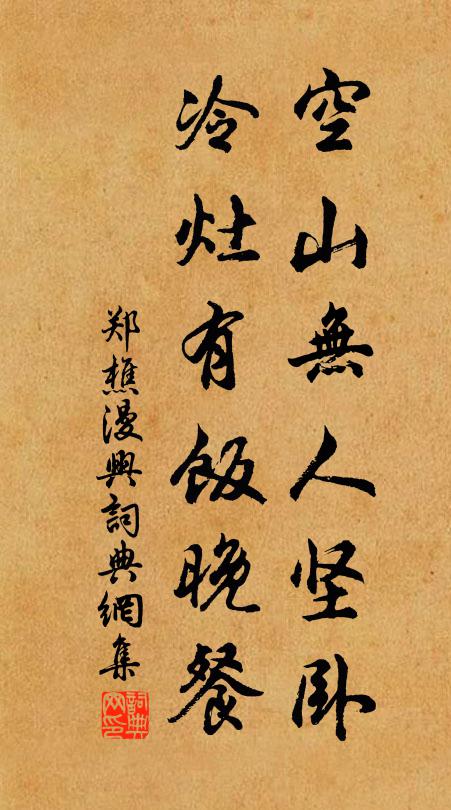 空山無人坚卧
冷灶有飯晚餐
郑樵漫興詞典網集
詞典网印